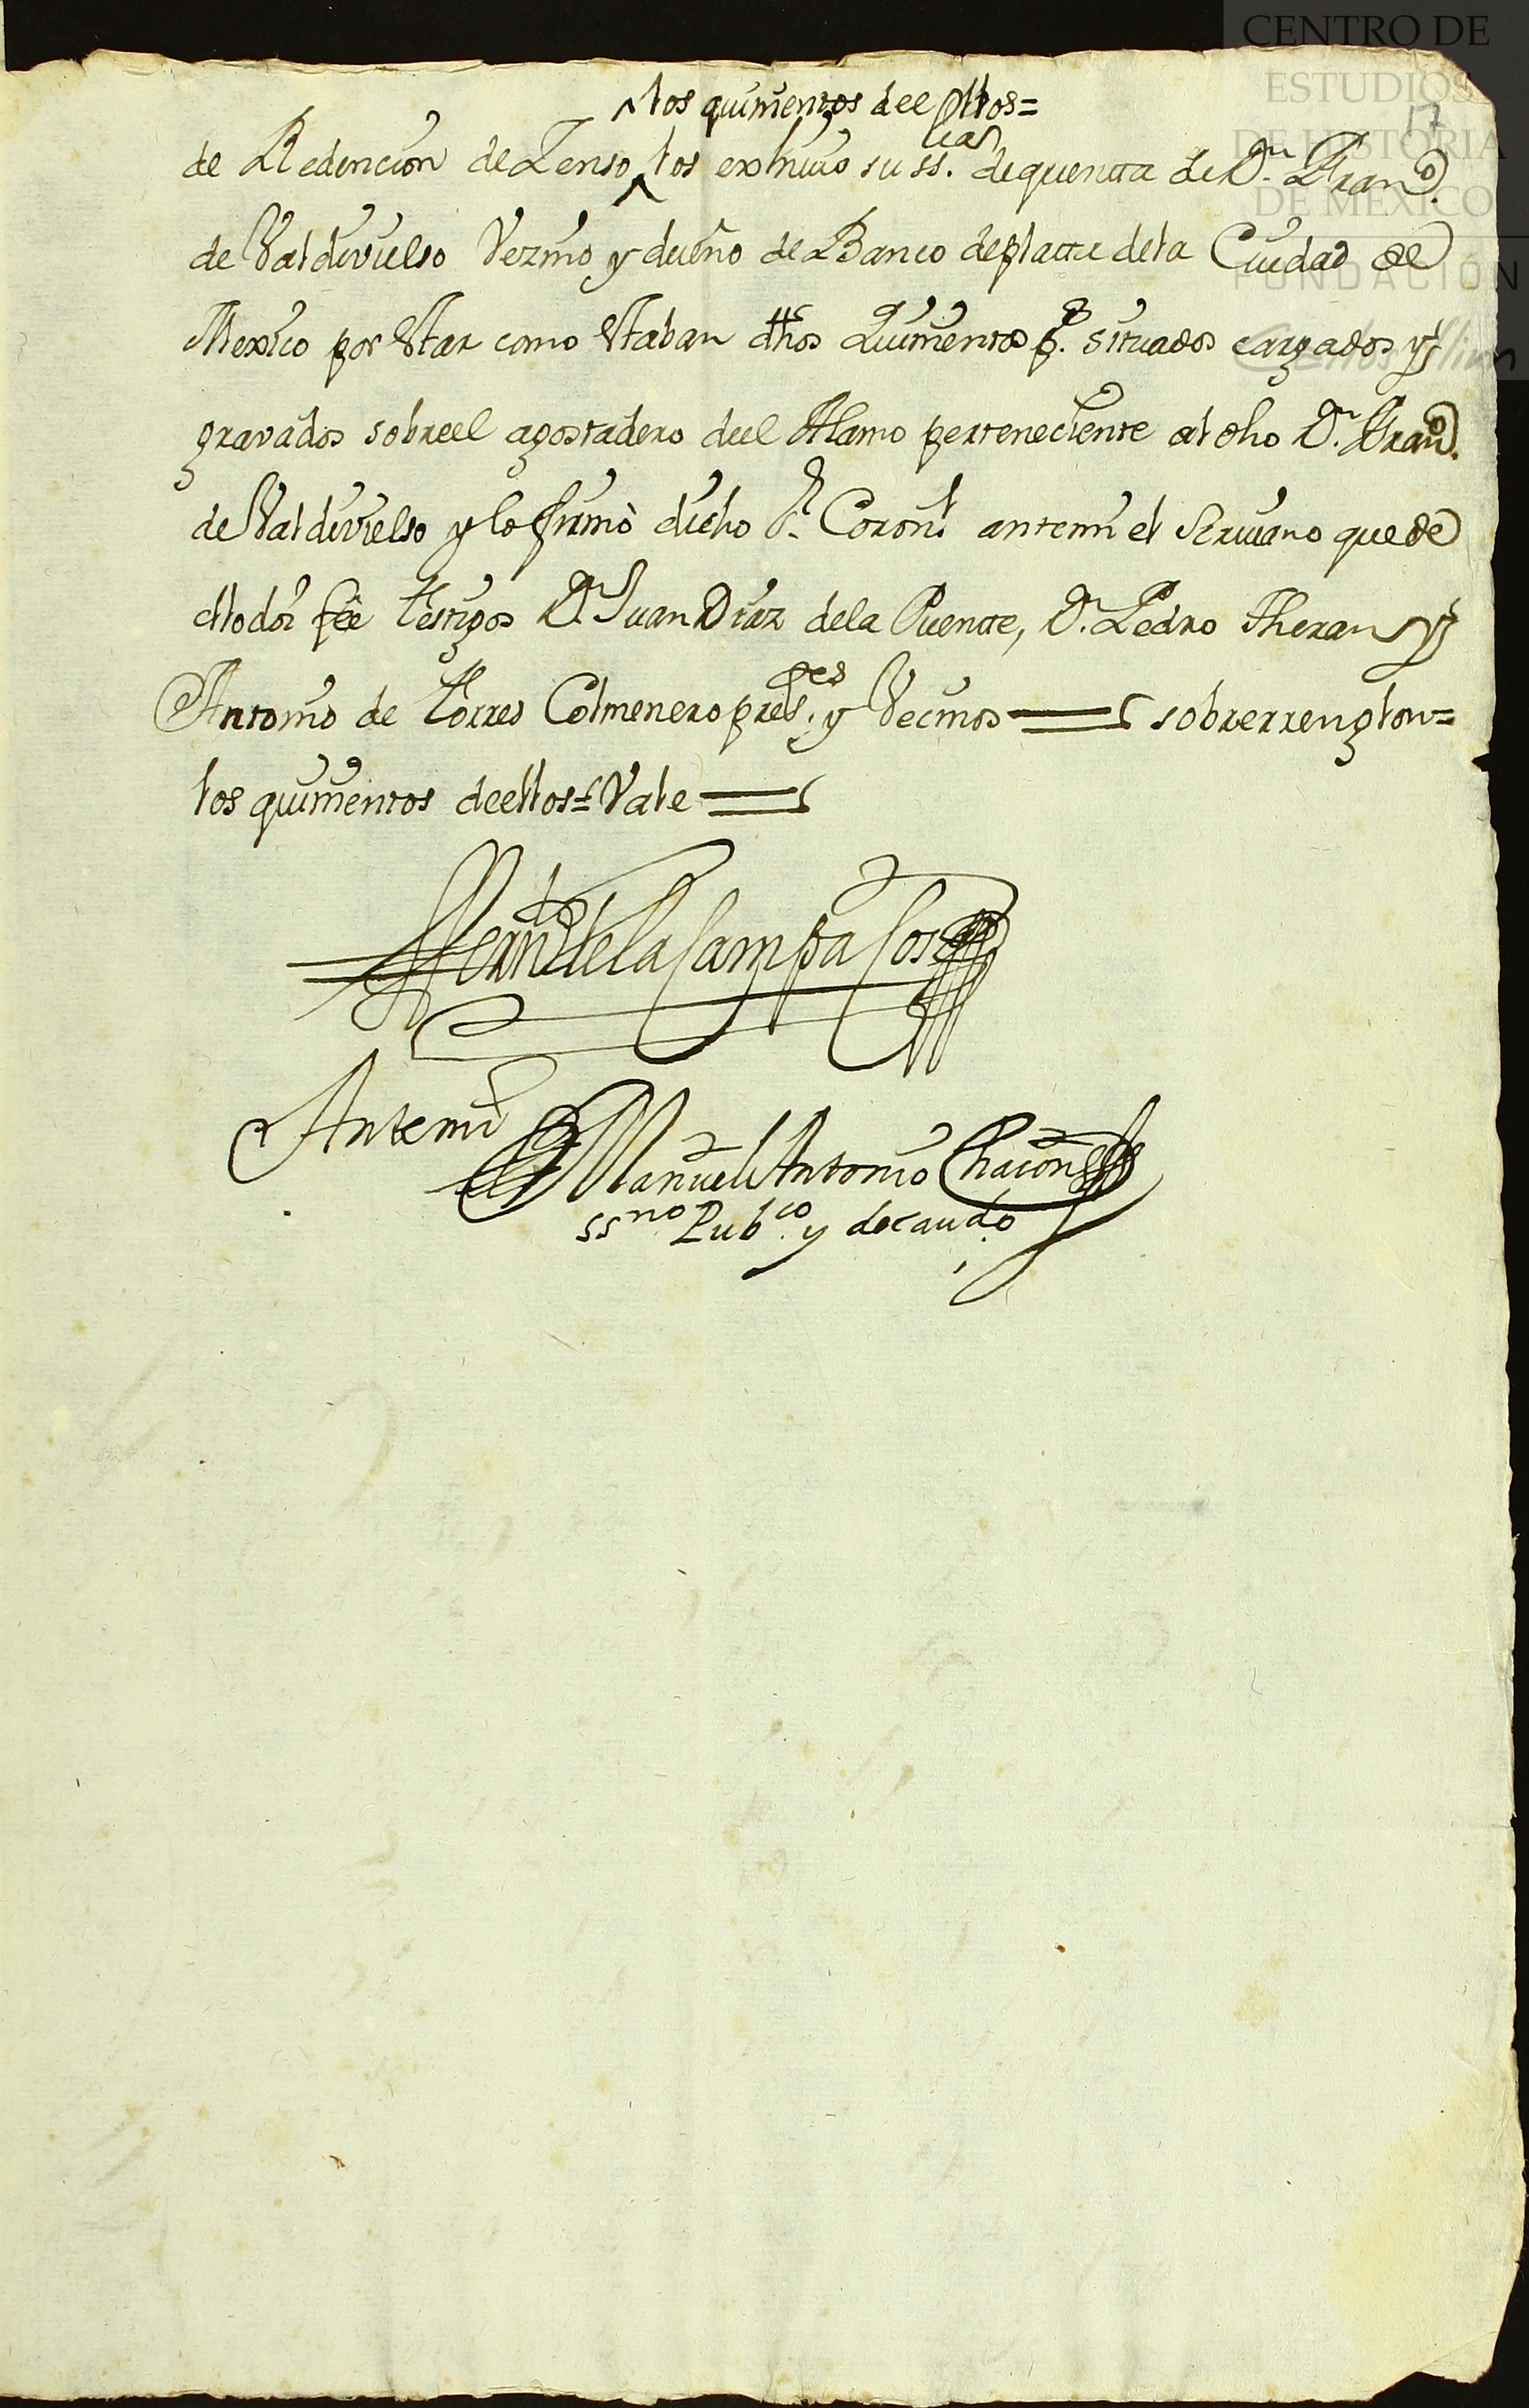 los quinientos dee ellos=
de Redencion de Zenso los exhiuio su ss.rias de quenta de Dn. Franco.
de Valdiuielso Vezino y dueño de Banco de platta de la Ciudad de
Mexico por estar como estaban dhos Quinientos ps. situados cargados y
gravados sobre el agostadero del Alamo perteneciente al dho Dn. Franco.
de Valdivielso y lo firmò dicho Sr. Coronl. ante mi el Scriuano que de
ello doi fèe testigos Dn. Juan Diaz de la Puente, Dn. Pedro Theran y
Antonio de Torres Colmenero pressres. y Vecinos sobrerrenglon=
los quinientos de ellos= Vale
Fernđo de la Campa Cos
Ante mi
Manuel Antonio Chacon
ssno Pubco y de cavdo
17
CENTRO DE
ESTUDIOS
DE HISTORIA
DE MEXICO
FUNDACIÓN
Carlos Slim